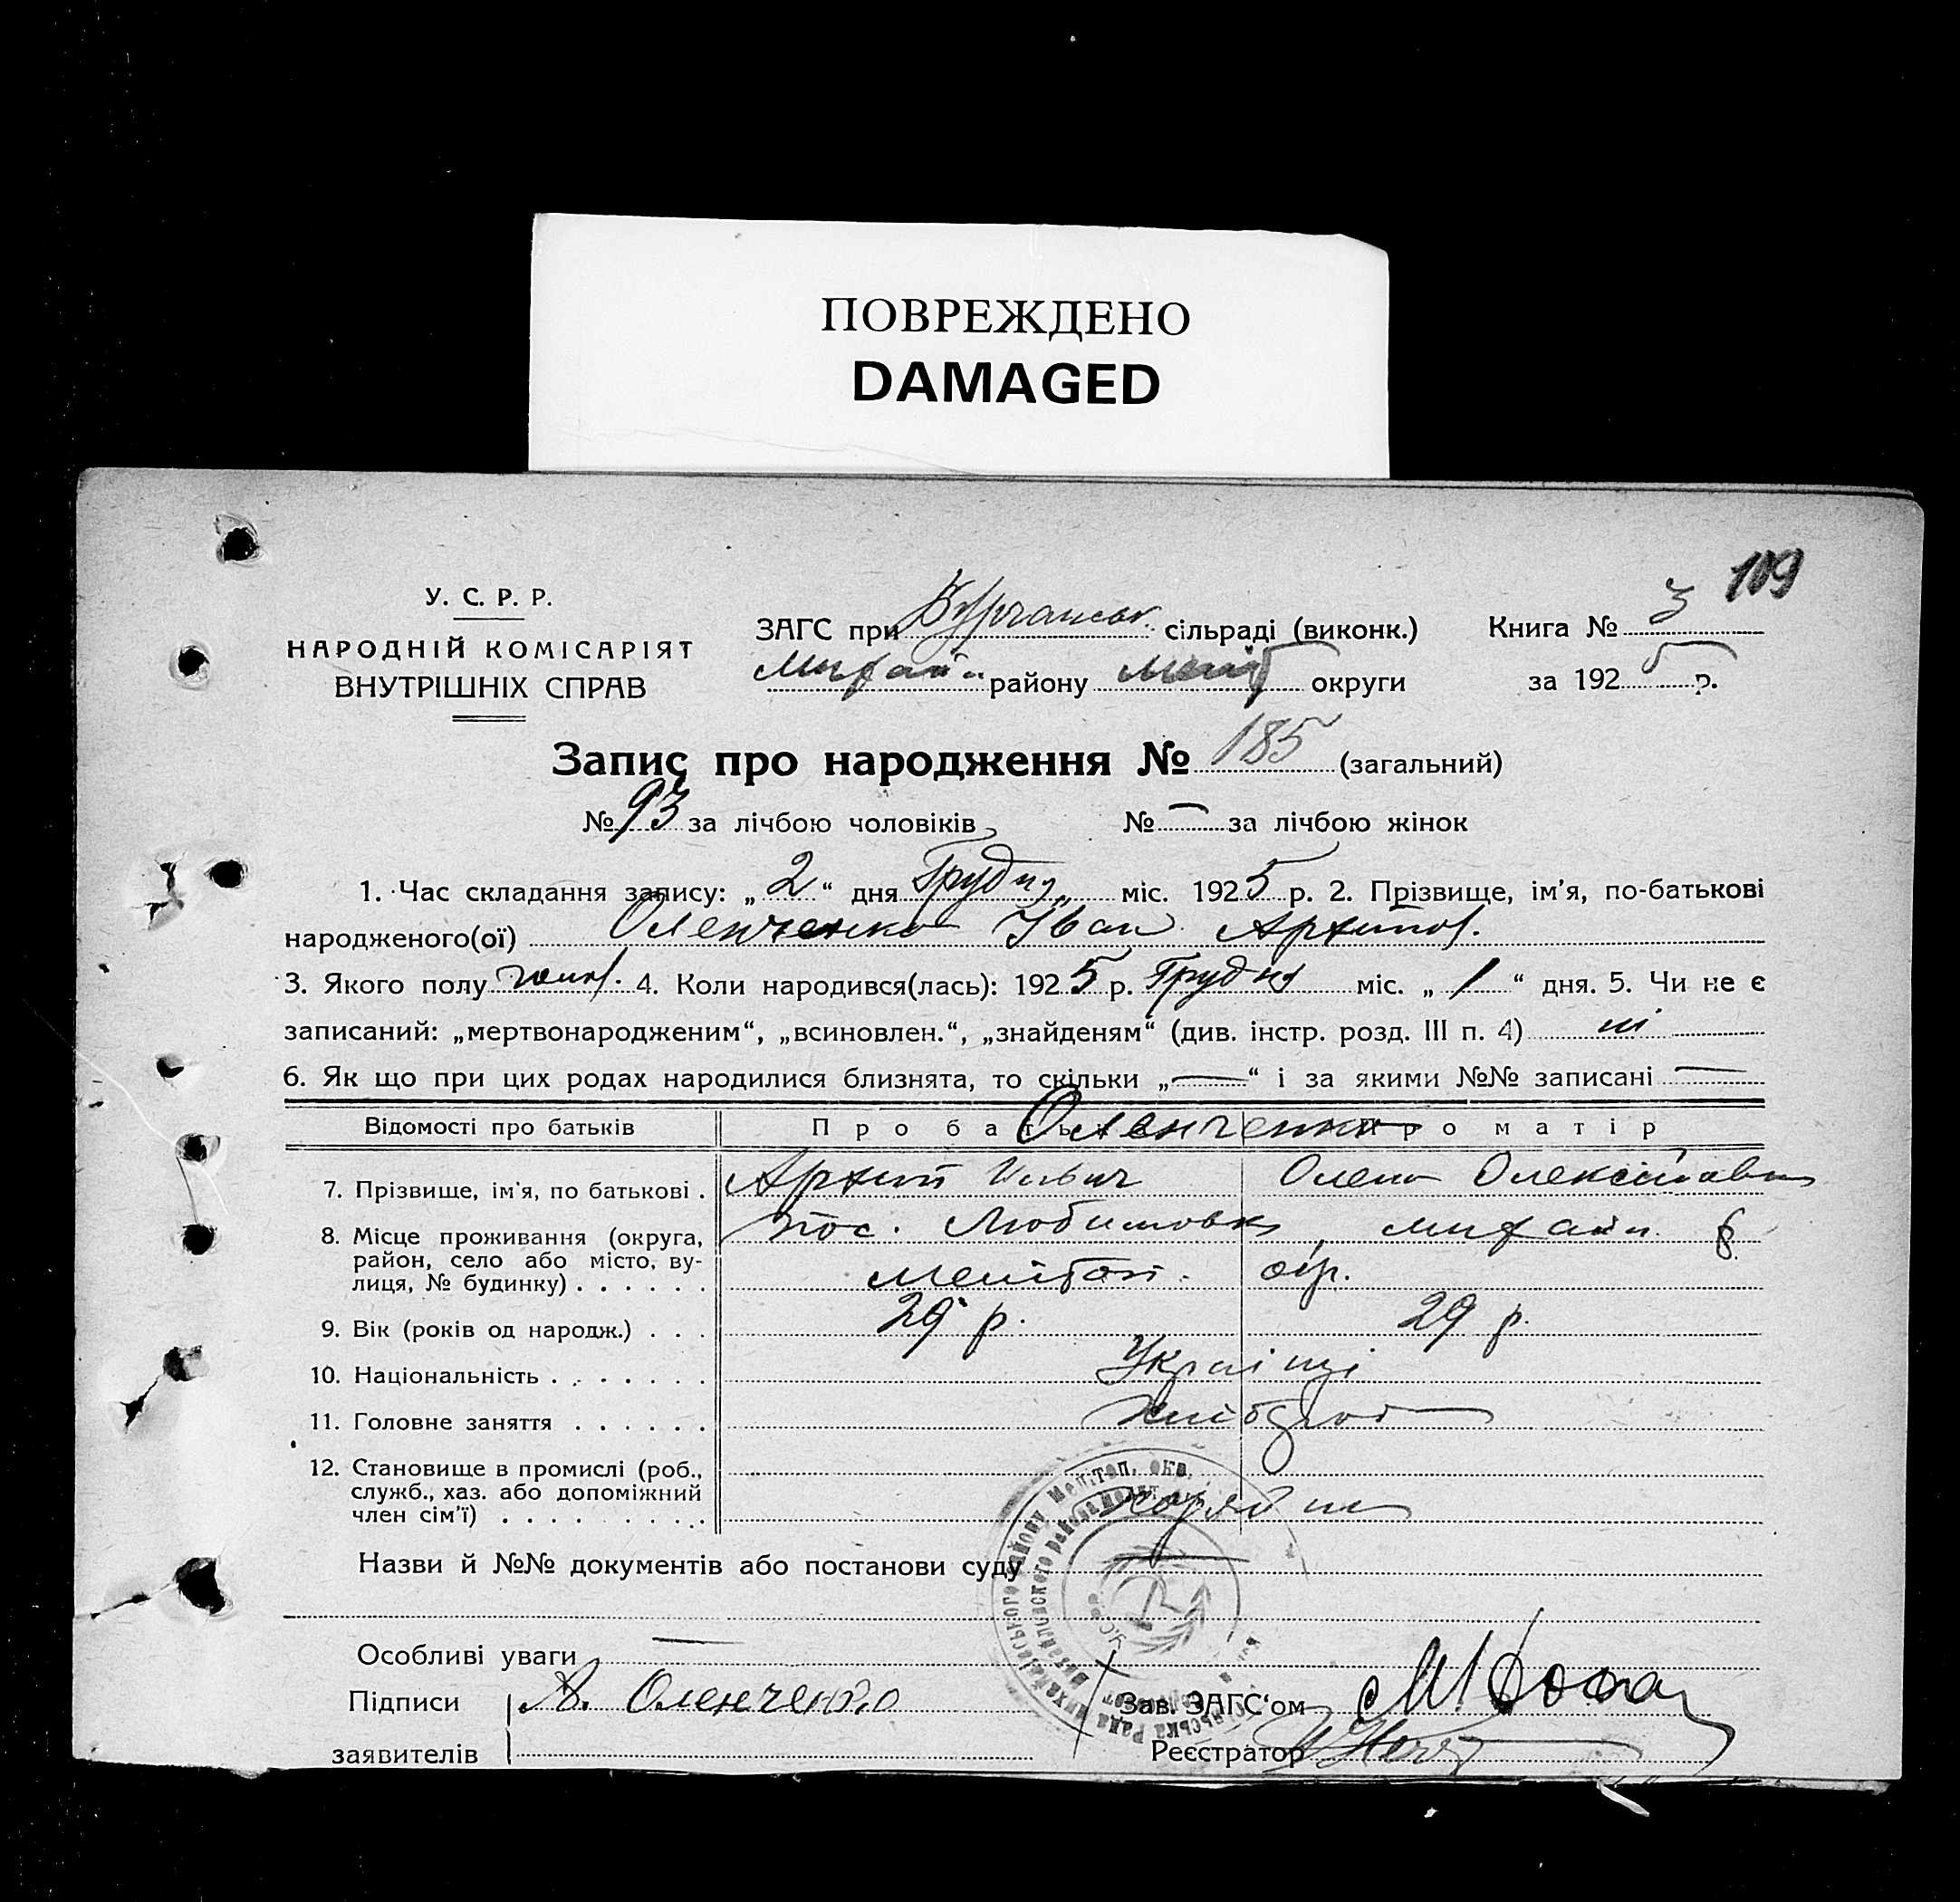 ПОВРЕЖДЕНО
DAMAGED
109
У. С. Р. Р.
НАРОДНІЙ КОМІСАРІЯТ
ВНУТРІШНІХ СПРАВ
ЗАГС при сільраді (виконк.)
Михайл. району Меліт округи
Книга № 3
за 1925 р.
Запис про народження № 185 (загальний)
№ 93 за лічбою чоловіків № — за лічбою жінок
1. Час складання запису: „ 2 “ дня Грудня міс. 1925 р. 2. Прізвище, ім'я, по-батькові
народженого(ої) Оленченко Іван Архипов.
3. Якого полу чолов. 4. Коли народився(лась): 1925 р. Грудня міс. „ 1 “ дня. 5. Чи не є
записаний: „мертвонародженим“, „всиновлен.“, „знайденям“ (див. інстр. розд. III п. 4) ні
6. Як що при цих родах народилися близнята, то скільки „—“ і за якими №№ записані —
Відомості про батьків Про батька Про матір
Оленченко
7. Прізвище, ім'я, по батькові . Архип Ильич Олена Олексіївна
8. Місце проживання (округа, район, село або місто, вулиця, № будинку) . . . . . . пос. Любимовка, Михайл.
Мелітоп. окр.
9. Вік (років од народж.) . . . 29 р. 29 р.
10. Національність . . . . . . . Українці
11. Головне заняття . . . . . . Хлібороб
12. Становище в промислі (роб., служб., хаз. або допоміжний член сім'ї) . . . . . . . . . хозяїн
Назви й №№ документів або постанови суду —
Особливі уваги —
Підписи заявителів А. Оленченко
Зав. ЗАГС‘ом
Реєстратор